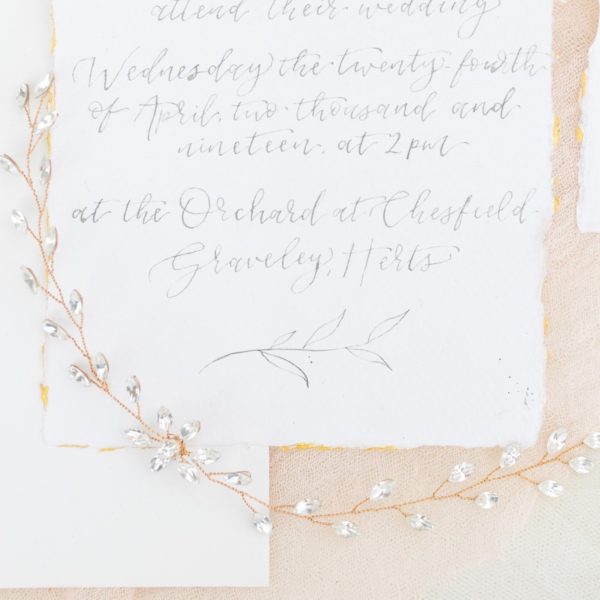 attend their wedding
Wednesday the twenty-fourth
of April, two thousand and
nineteen, at 2pm
at the Orchard at Chesfield
Graveley, Herts